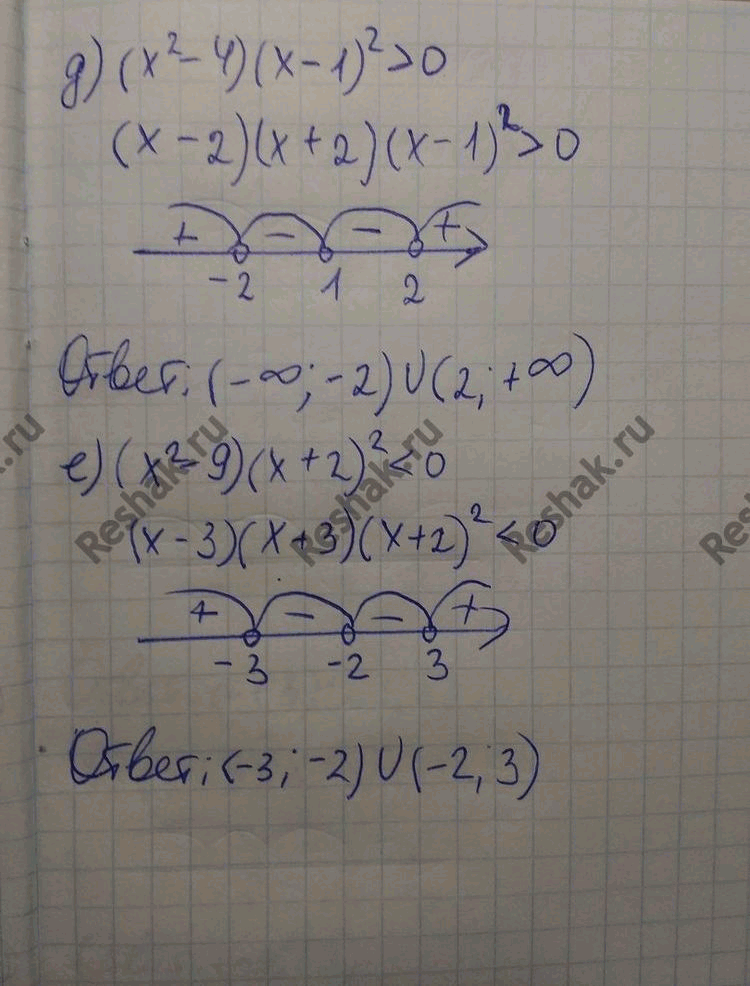 д) (x²-4)(x-1)²>0
(x-2)(x+2)(x-1)²>0
+ - - +
-2 1 2
Ответ: (-∞;-2)∪(2;+∞)
е) (x²-9)(x+2)²<0
(x-3)(x+3)(x+2)²<0
+ - - +
-3 -2 3
Ответ: (-3;-2)∪(-2;3)
Reshak.ru Reshak.ru Reshak.ru